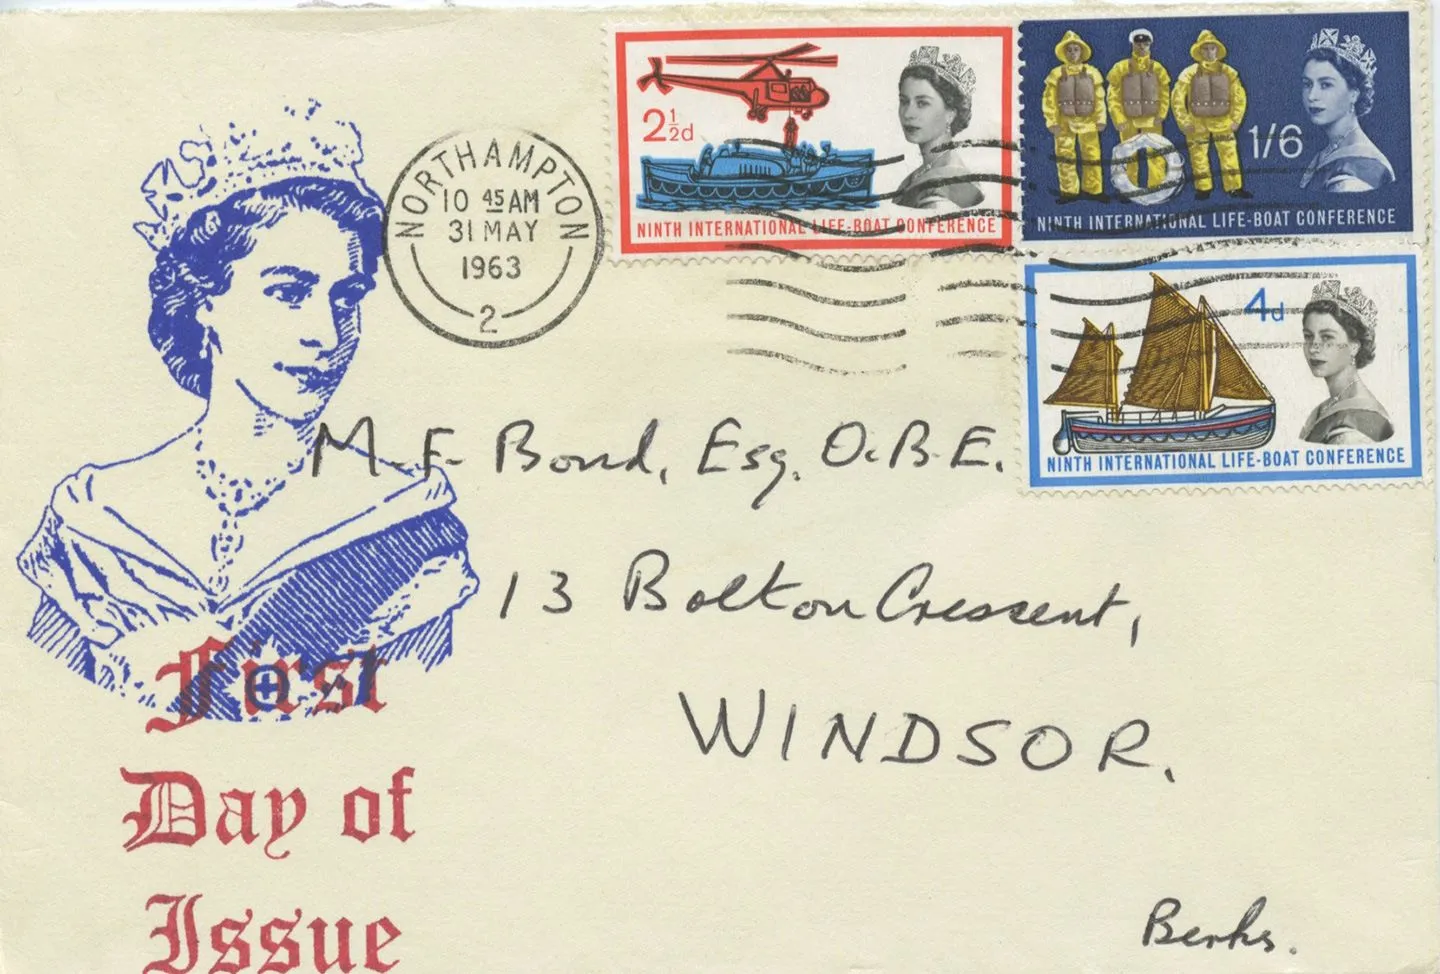 NORTHAMPTON
10 45 AM
31 MAY
1963
2
2½d
NINTH INTERNATIONAL LIFE-BOAT CONFERENCE
1/6
NINTH INTERNATIONAL LIFE-BOAT CONFERENCE
4d
NINTH INTERNATIONAL LIFE-BOAT CONFERENCE
M.F. Bond, Esq. O.B.E.
13 Bolton Crescent,
WINDSOR.
Berks.
First
Day of
Issue